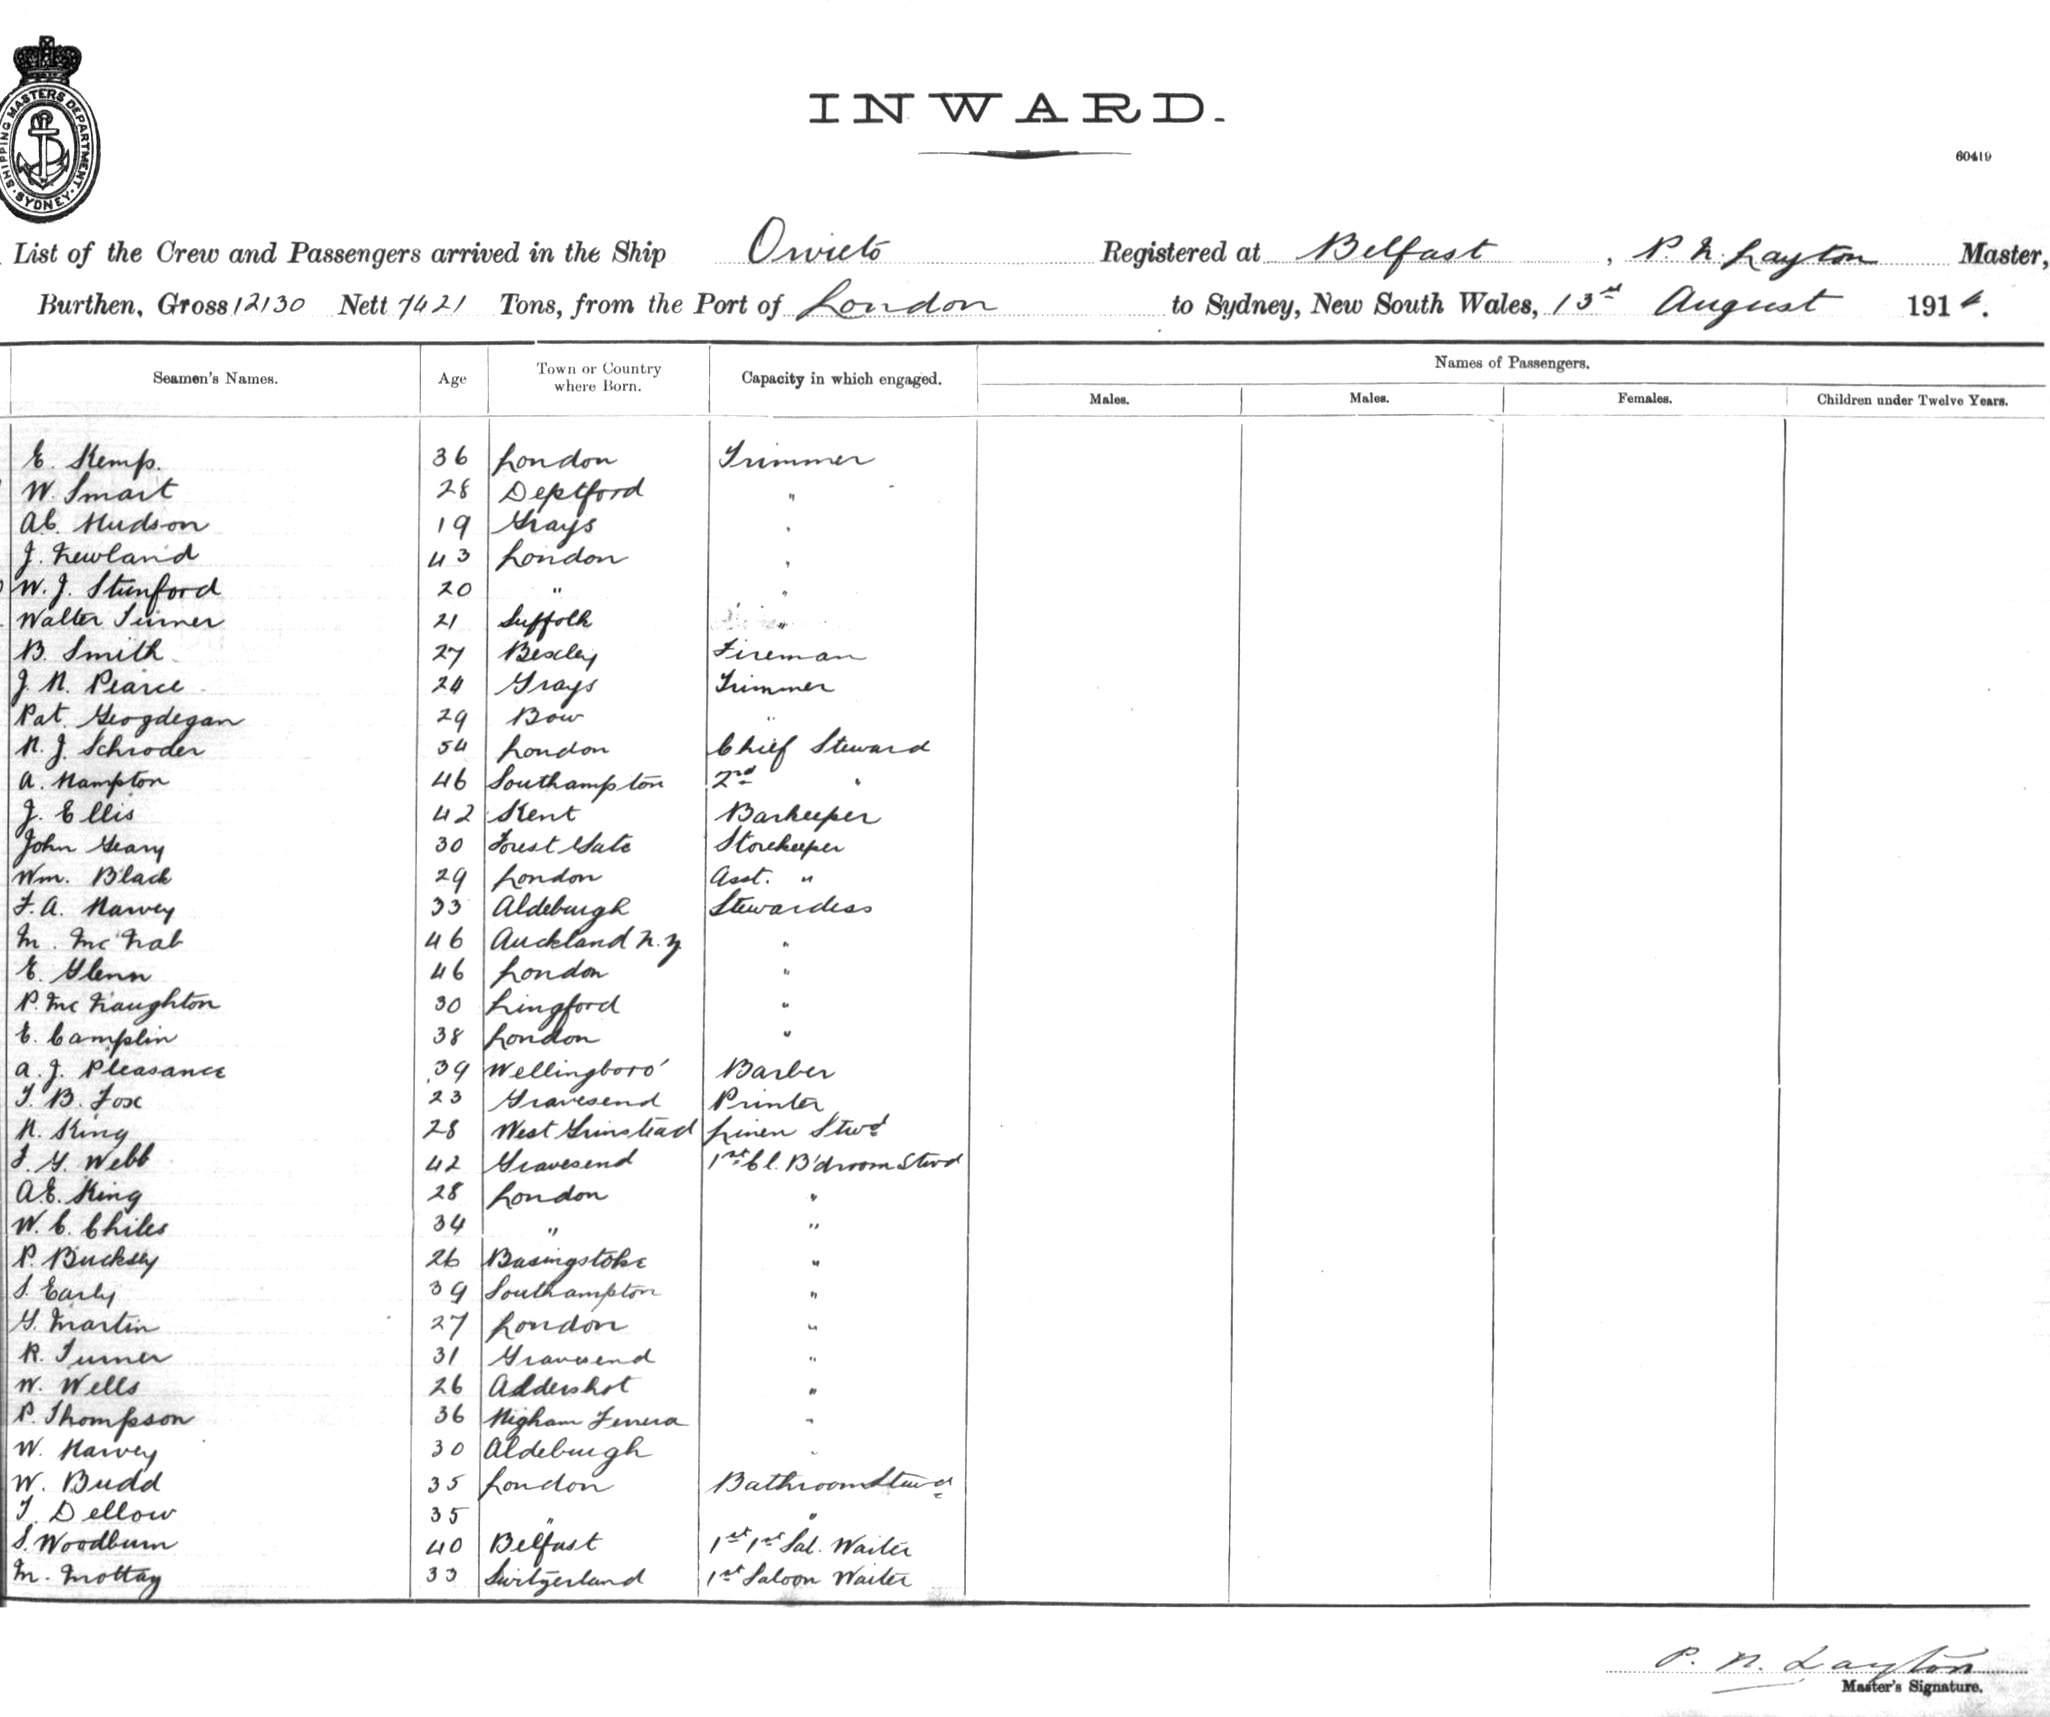 SHIPPING MASTERS DEPARTMENT · SYDNEY ·
INWARD.
60419
List of the Crew and Passengers arrived in the Ship Orvieto Registered at Belfast, P. N. Layton Master,
Burthen, Gross 12130 Nett 7421 Tons, from the Port of London to Sydney, New South Wales, 13th August 1914.
Seamen's Names. Age Town or Country where Born. Capacity in which engaged. Names of Passengers.
Males. Males. Females. Children under Twelve Years.
E. Kemp. 36 London Trimmer
W. Smart 28 Deptford "
A.C. Hudson 19 Grays "
J. Newland 43 London "
W. J. Stunford 20 " "
Walter Turner 21 Suffolk "
B. Smith 27 Bexley Fireman
J. H. Pearce 24 Grays Trimmer
Pat. Geogdegan 29 Bow "
H. J. Schroder 54 London Chief Steward
A. Hampton 46 Southampton 2nd "
J. Ellis 42 Kent Barkeeper
John Geary 30 Forest Gate Storekeeper
Wm. Black 29 London Asst. "
F. A. Harvey 33 Aldeburgh Stewardess
M. McNab 46 Auckland N.Z. "
E. Glenn 46 London "
P. McNaughton 30 Lingford "
E. Camplin 38 London "
A. J. Pleasance 39 Wellingboro' Barber
T. B. Fox 23 Gravesend Printer
H. King 28 West Grinstead Linen Stwd
F. G. Webb 42 Gravesend 1st Cl. B'droom Stwd
A.E. King 28 London "
W. C. Chiles 34 " "
P. Bucksey 26 Basingstoke "
S. Early 39 Southampton "
G. Martin 27 London "
R. Turner 31 Gravesend "
W. Wells 26 Addershot "
P. Thompson 36 Higham "
W. Harvey 30 Aldeburgh "
W. Budd 35 London Bathroom Stewd
T. Dellow 35 " "
S. Woodburn 40 Belfast 1st 1st Sal. Waiter
M. Mottay 33 Switzerland 1st Saloon Waiter
P. N. Layton
Master's Signature.